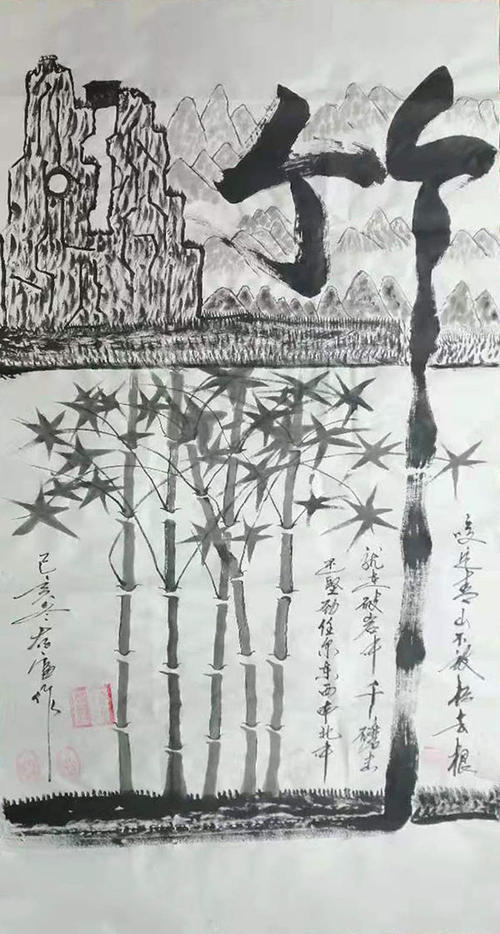 竹
咬定青山不放松立根
就在破岩中千磨击
还坚劲任尔东西南北中
己亥冬作